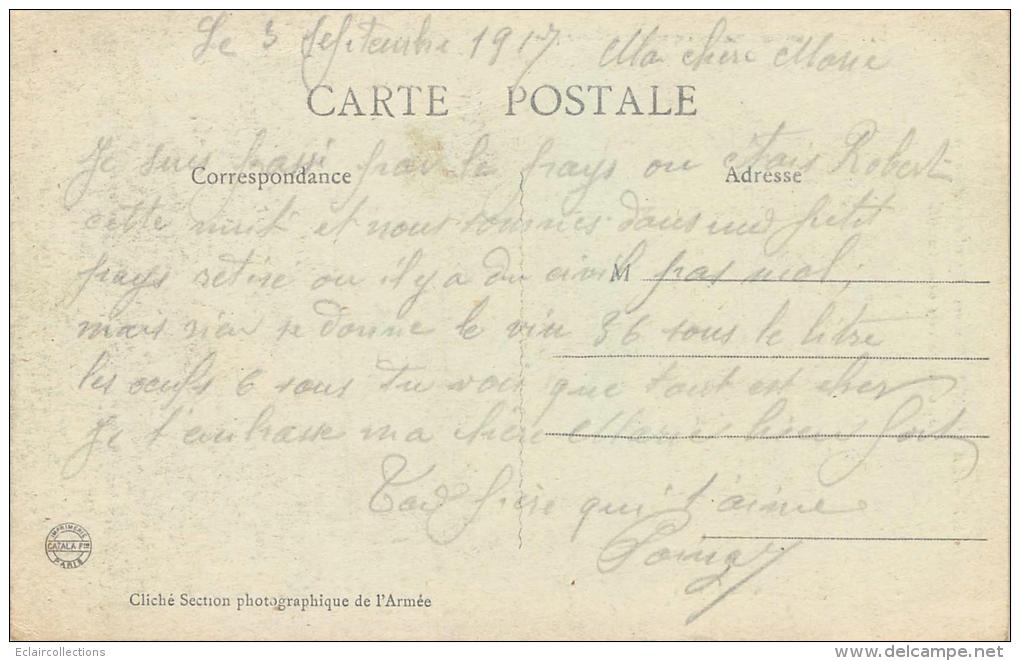 Le 3 Septembre 1917 Ma chère Marie
CARTE POSTALE
Je suis passé par le pays ou étais Robert
Correspondance
Adresse
cette nuit et nous sommes dans un petit
pays retiré ou il y a du civil pas mal,
M
mais rien se donne le vin 36 sous le litre
les oeufs 6 sous tu vois que tout est cher
Je t'embrasse ma chère Marie bien fort
Ton frère qui t'aime
IMPRIMERIE
CATALA Fres
PARIS
Cliché Section photographique de l'Armée
Eclaircollections
www.delcampe.net